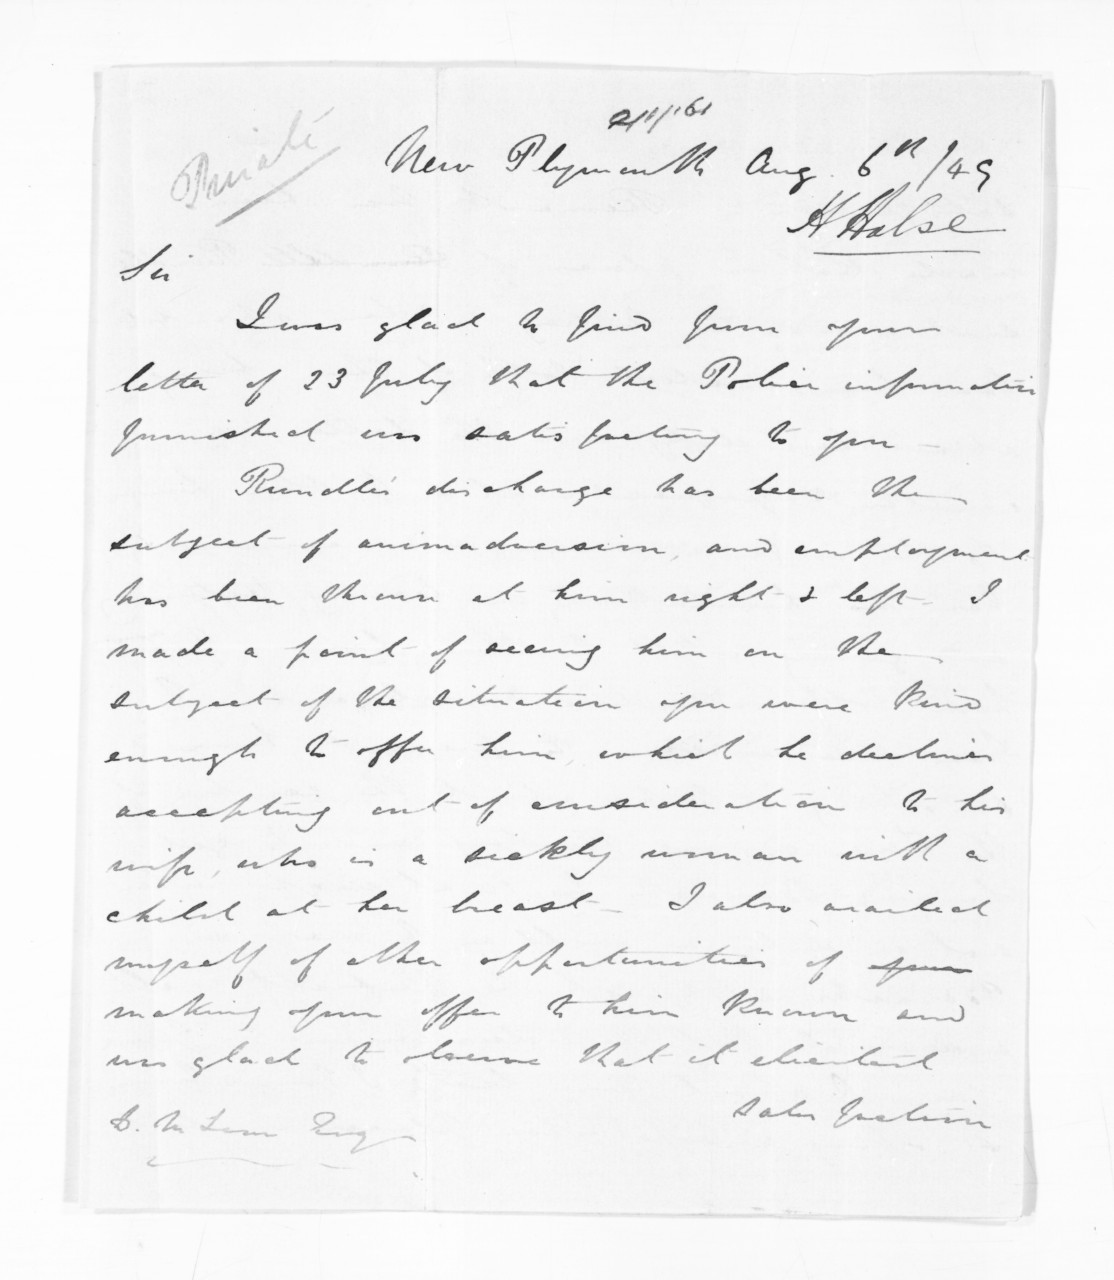 Private
New Plymouth Aug. 6th /49
H Halse
Sir
I was glad to find from your
letter of 23 July that the Police information
furnished was satisfactory to you -
Rundle's discharge has been the
subject of animadversion, and employment
has been thrown at him right & left - I
made a point of seeing him on the
subject of the situation you were kind
enough to offer him, which he declines
accepting out of consideration to his
wife, who is a sickly woman with a
child at her breast - I also availed
myself of other opportunities of your
making your offer to him known and
was glad to observe that it elicited
satisfaction
D. McLean Esq